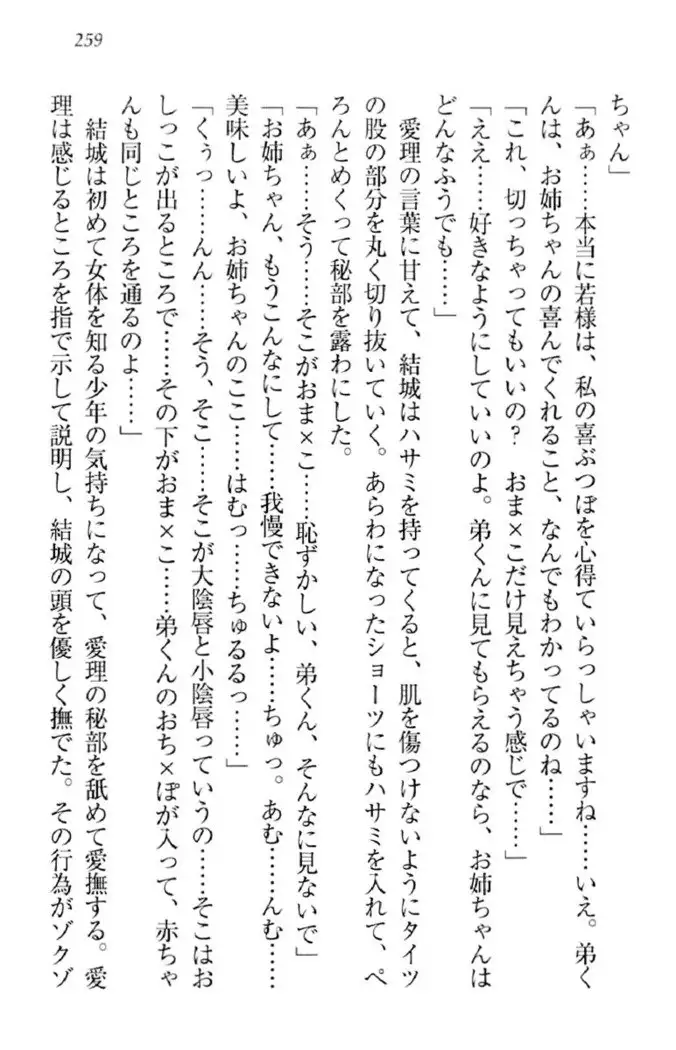 259
ちゃん」
「あぁ……本当に若様は、私の喜ぶつぼを心得ていらっしゃいますね……いえ。弟く
んは、お姉ちゃんの喜んでくれること、なんでもわかってるのね……」
「これ、切っちゃってもいいの？　おま×こだけ見えちゃう感じで……」
「ええ……好きなようにしていいのよ。弟くんに見てもらえるのなら、お姉ちゃんは
どんなふうでも……」
　愛理の言葉に甘えて、結城はハサミを持ってくると、肌を傷つけないようにタイツ
の股の部分を丸く切り抜いていく。あらわになったショーツにもハサミを入れて、ぺ
ろんとめくって秘部を露わにした。
「あぁ……そう……そこがおま×こ……恥ずかしい、弟くん、そんなに見ないで」
「お姉ちゃん、もうこんなにして……我慢できないよ……ちゅっ。あむ……んむ……
美味しいよ、お姉ちゃんのここ……はむっ……ちゅるるっ……」
「くぅっ……んん……そう、そこ……そこが大陰唇と小陰唇っていうの……そこはお
しっこが出るところで……その下がおま×こ……弟くんのおち×ぽが入って、赤ちゃ
んも同じところを通るのよ……」
　結城は初めて女体を知る少年の気持ちになって、愛理の秘部を舐めて愛撫する。愛
理は感じるところを指で示して説明し、結城の頭を優しく撫でた。その行為がゾクゾ